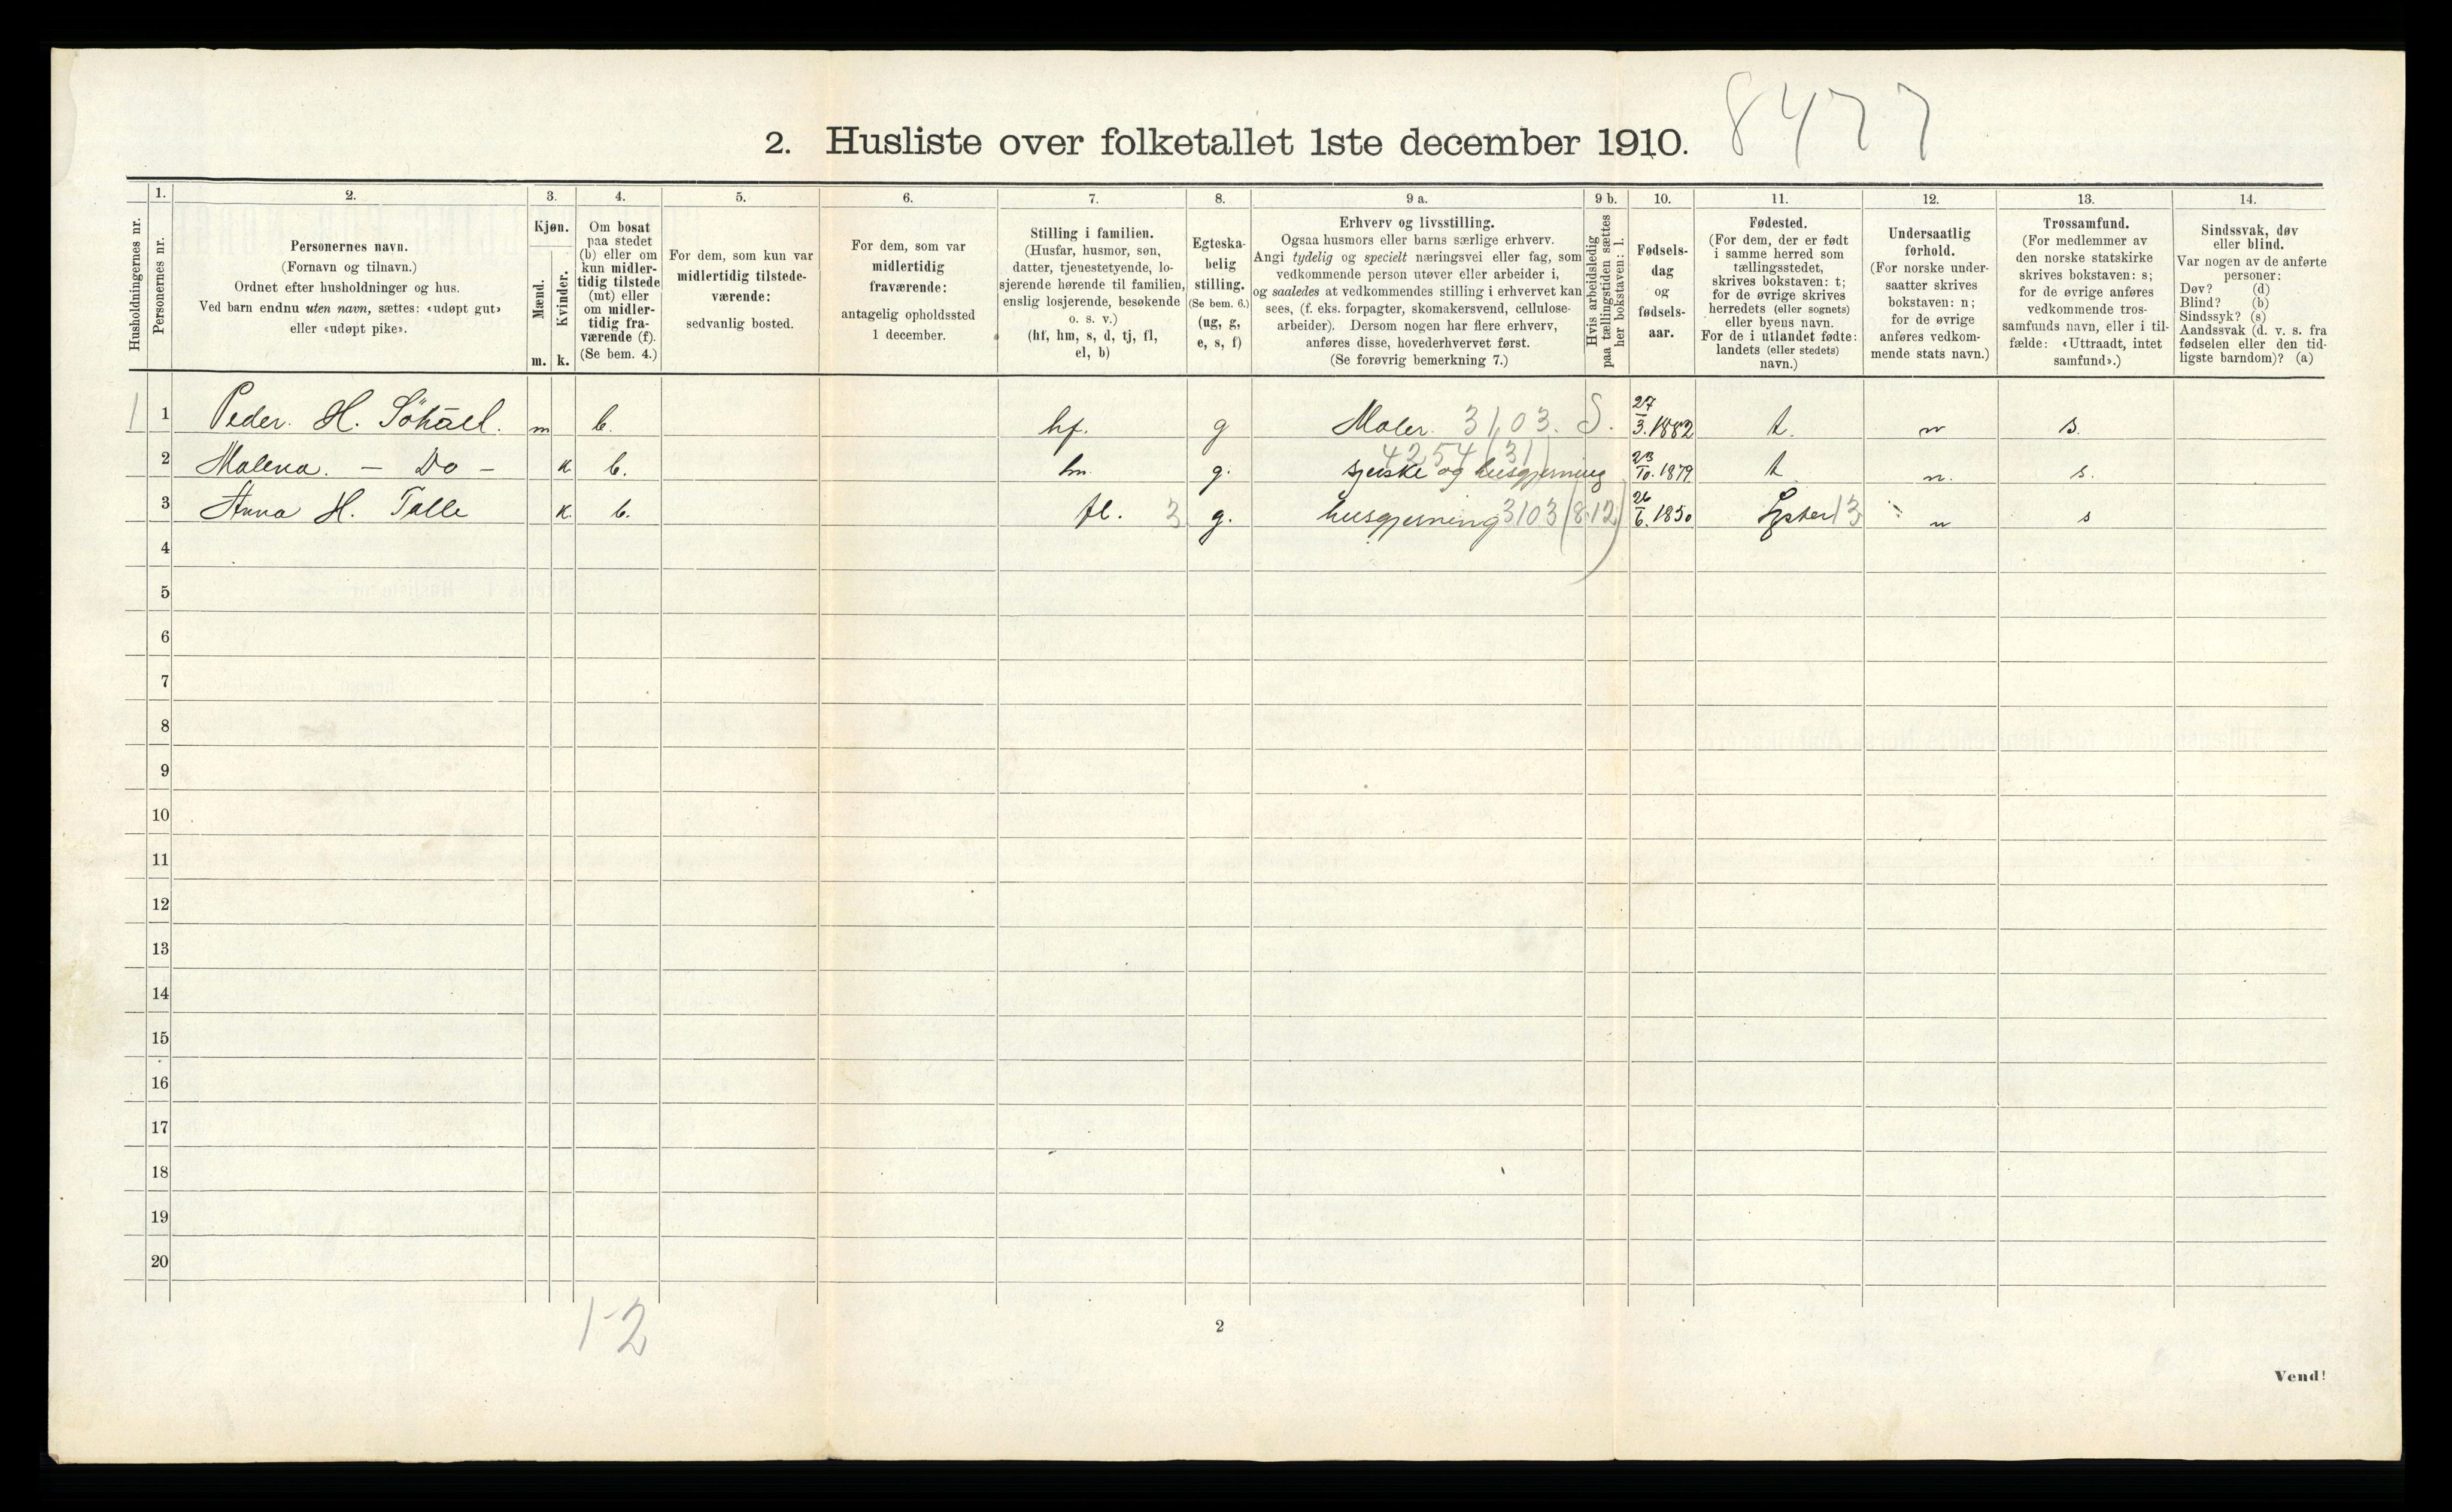 8477
2. Husliste over folketallet 1ste december 1910.
Husholdningernes nr.
1.
Personernes nr.
2.
Personernes navn.
(Fornavn og tilnavn.)
Ordnet efter husholdninger og hus.
Ved barn endnu uten navn, sættes: «udøpt gut»
eller «udøpt pike».
3.
Kjøn.
Mænd.
Kvinder.
m. k.
4.
Om bosat
paa stedet
(b) eller om
kun midler-
tidig tilstede
(mt) eller
om midler-
tidig fra-
værende (f).
(Se bem. 4.)
5.
For dem, som kun var
midlertidig tilstede-
værende:
sedvanlig bosted.
6.
For dem, som var
midlertidig
fraværende:
antagelig opholdssted
1 december.
7.
Stilling i familien.
(Husfar, husmor, søn,
datter, tjenestetyende, lo-
sjerende hørende til familien,
enslig losjerende, besøkende
o. s. v.)
(hf, hm, s, d, tj, fl,
el, b)
8.
Egteska-
belig
stilling.
(Se bem. 6.)
(ug, g,
e, s, f)
9 a.
Erhverv og livsstilling.
Ogsaa husmors eller barns særlige erhverv.
Angi tydelig og specielt næringsvei eller fag, som
vedkommende person utøver eller arbeider i,
og saaledes at vedkommendes stilling i erhvervet kan
sees, (f. eks. forpagter, skomakersvend, cellulose-
arbeider). Dersom nogen har flere erhverv,
anføres disse, hovederhvervet først.
(Se forøvrig bemerkning 7.)
9 b.
Hvis arbeidsledig
paa tællingstiden sættes
her bokstaven: l.
10.
Fødsels-
dag
og
fødsels-
aar.
11.
Fødested.
(For dem, der er født
i samme herred som
tællingsstedet,
skrives bokstaven: t;
for de øvrige skrives
herredets (eller sognets)
eller byens navn.
For de i utlandet fødte:
landets (eller stedets)
navn.)
12.
Undersaatlig
forhold.
(For norske under-
saatter skrives
bokstaven: n;
for de øvrige
anføres vedkom-
mende stats navn.)
13.
Trossamfund.
(For medlemmer av
den norske statskirke
skrives bokstaven: s;
for de øvrige anføres
vedkommende tros-
samfunds navn, eller i til-
fælde: «Uttraadt, intet
samfund».)
14.
Sindssvak, døv
eller blind.
Var nogen av de anførte
personer:
Døv? (d)
Blind? (b)
Sindssyk? (s)
Aandssvak (d. v. s. fra
fødselen eller den tid-
ligste barndom)? (a)
1 1 Peder. H. m b. hf. g Maler. 3103. S. 27/3.1882 t. n s.
2 Malena. – Do – k b. hm g. 4254 (31) syerske og husgjerning 23/10.1879 t n. s.
3 Anna H. Talle k b. fl. 3 g. husgjerning 3103 (8.12) 26/6.1850 13 n s
4
5
6
7
8
9
10
11
12
13
14
15
16
17
18
19
20
1-2
2
Vend!